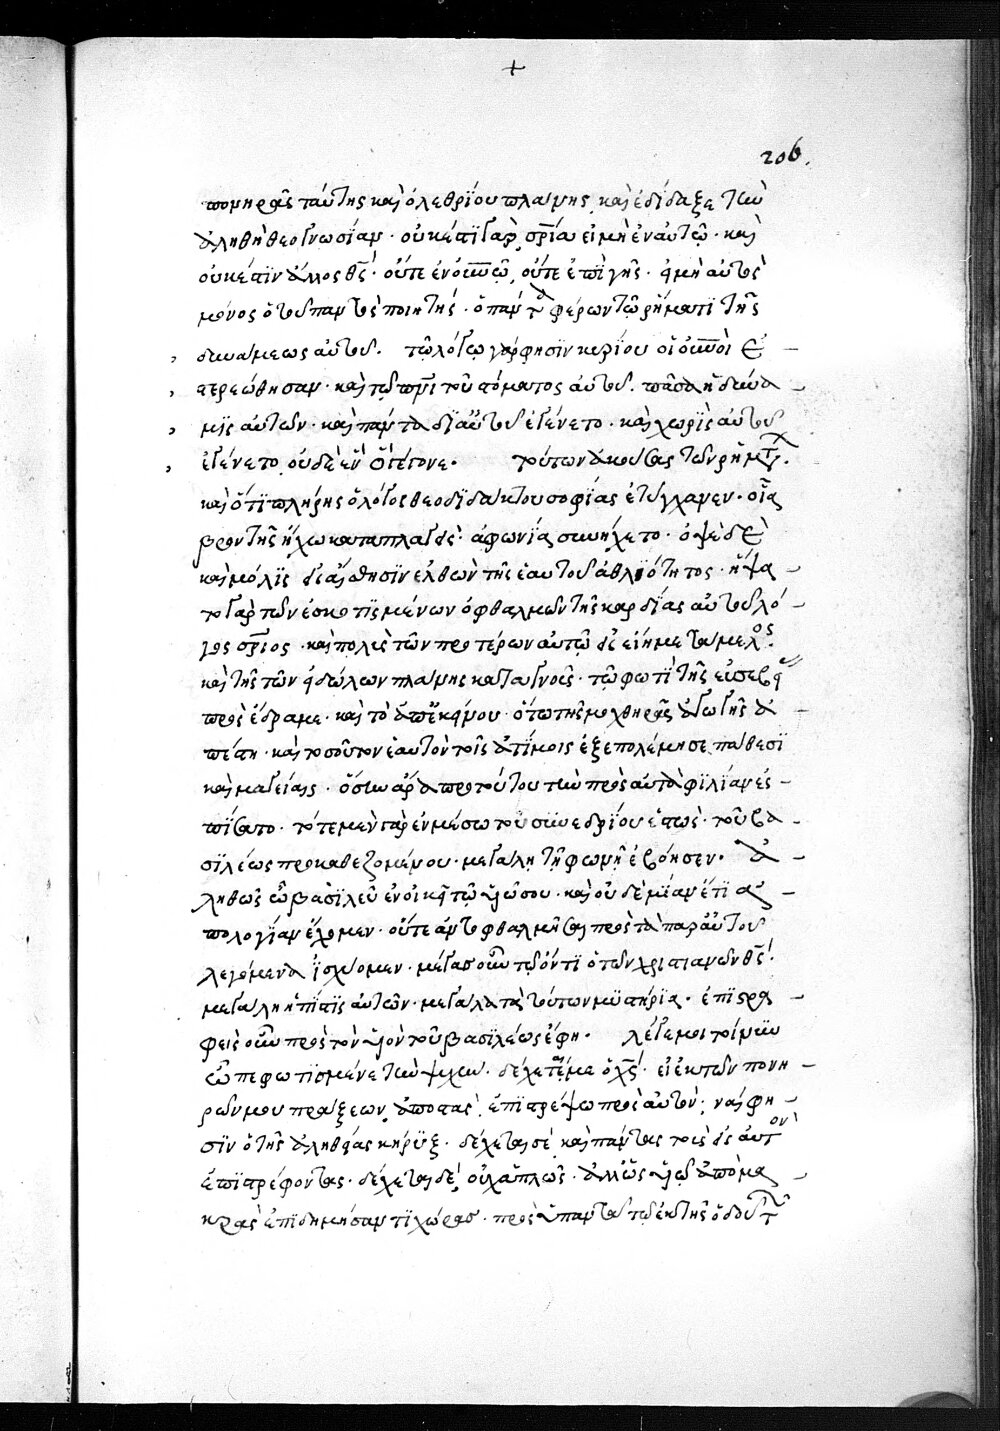 +
206.
πονηρᾶς ταύτης καὶ ὀλεθρίου πλάνης, καὶ ἐδίδαξε τὴν
ἀληθῆ θεογνωσίαν· οὐκ ἔστι γὰρ σρία εἰ μὴ ἐν αὐτῷ· καὶ
οὐκ ἔστιν ἄλλος θς· οὔτε ἐν οὐνῷ, οὔτε ἐπὶ γῆς· εἰ μὴ αὐτὸς
μόνος ὁ τοῦ παντὸς ποιητής· ὁ πάντα φέρων τῷ ῥήματι τῆς
δυνάμεως αὐτοῦ. τῷ λόγῳ γάρ φησιν κυρίου οἱ οὐνοὶ ἐ–
στερεώθησαν· καὶ τῷ πνι τοῦ στόματος αὐτοῦ. πᾶσα ἡ δύνα–
μις αὐτῶν· καὶ πάντα δι' αὐτοῦ ἐγένετο· καὶ χωρὶς αὐτοῦ
ἐγένετο οὐδὲ ἓν ὃ γέγονε. τούτων ἀκούσας τῶν ῥημάτ.
καὶ ὅτι πλήρης ὁ λόγος θεοδιδάκτου σοφίας ἐτύγχανεν· οἷα
βροντῆς ἤχω καταπλαγεὶς· ἀφωνίᾳ συνήχετο· ὀψὲ δὲ
καὶ μόλις εἰς αἴσθησιν ἐλθὼν τῆς ἑαυτοῦ ἀθλιότητος· ἥψα–
το γὰρ τῶν ἐσκοτισμένων ὀφθαλμῶν τῆς καρδίας αὐτοῦ λό–
γος σριος· καὶ πολὺς τῶν προτέρων αὐτῷ εἰσῄει μετάμελος.
καὶ τῆς τῶν εἰδώλων πλάνης καταγνοὺς· τῷ φωτὶ τῆς εὐσεβεί
προσέδραμε· καὶ τὸ ἀπ' ἐκείνου· οὕτω τῆς μοχθηρᾶς ἀγωγῆς ἀ–
πέστη· καὶ τοσοῦτον ἑαυτὸν τοῖς ἀτίμοις ἐξεπολέμησε πάθεσι
καὶ μαγείαις· ὅσην ἄρα πρὸ τούτου τὴν πρὸς αὐτὰ φιλίαν ἐσ–
πίσατο· τότε μὲν γὰρ ἐν μέσῳ τοῦ συνεδρίου ἑστὼς· τοῦ βα–
σιλέως προκαθεζομένου· μεγάλῃ τῇ φωνῇ ἐβόησεν. ἀ–
ληθῶς ὦ βασιλεῦ ἐνοικεῖ τῷ υἱῷ σου· καὶ οὐδεμίαν ἔτι ἀ–
πολογίαν ἔχομεν· οὔτε ἀντοφθαλμῆσαι πρὸς τὰ παρ' αὐτοῦ
λεγόμενα ἰσχύομεν· μέγας οὖν τῷ ὄντι ὁ τῶν χριστιανῶν θς·
μεγάλη ἡ πίστις αὐτῶν· μεγάλα τὰ τούτων μυστήρια. ἐπιστρα–
φεὶς οὖν πρὸς τὸν υἱὸν τοῦ βασιλέως ἔφη. λέγε μοι τοίνυν
ὦ πεφωτισμένε τὴν ψυχὴν· δέχεταί με ὁ χς· εἰ ἐκ τῶν πονη–
ρῶν μου πράξεων ἀποστὰς, ἐπιστρέψω πρὸς αὐτόν; ναί φη–
σιν ὁ τῆς ἀληθείας κήρυξ· δέχεταί σε καὶ πάντας τοὺς εἰς αὐτὸν
ἐπιστρέφοντας· δέχεται δέ, οὐχ ἁπλῶς· ἀλλ' ὡς υἱῷ ἀπὸ μα–
κρᾶς ἐπιδημήσαντι χώρας· προσυπαντᾷ τῷ ἐκ τῆς ὁδοῦ τῶν